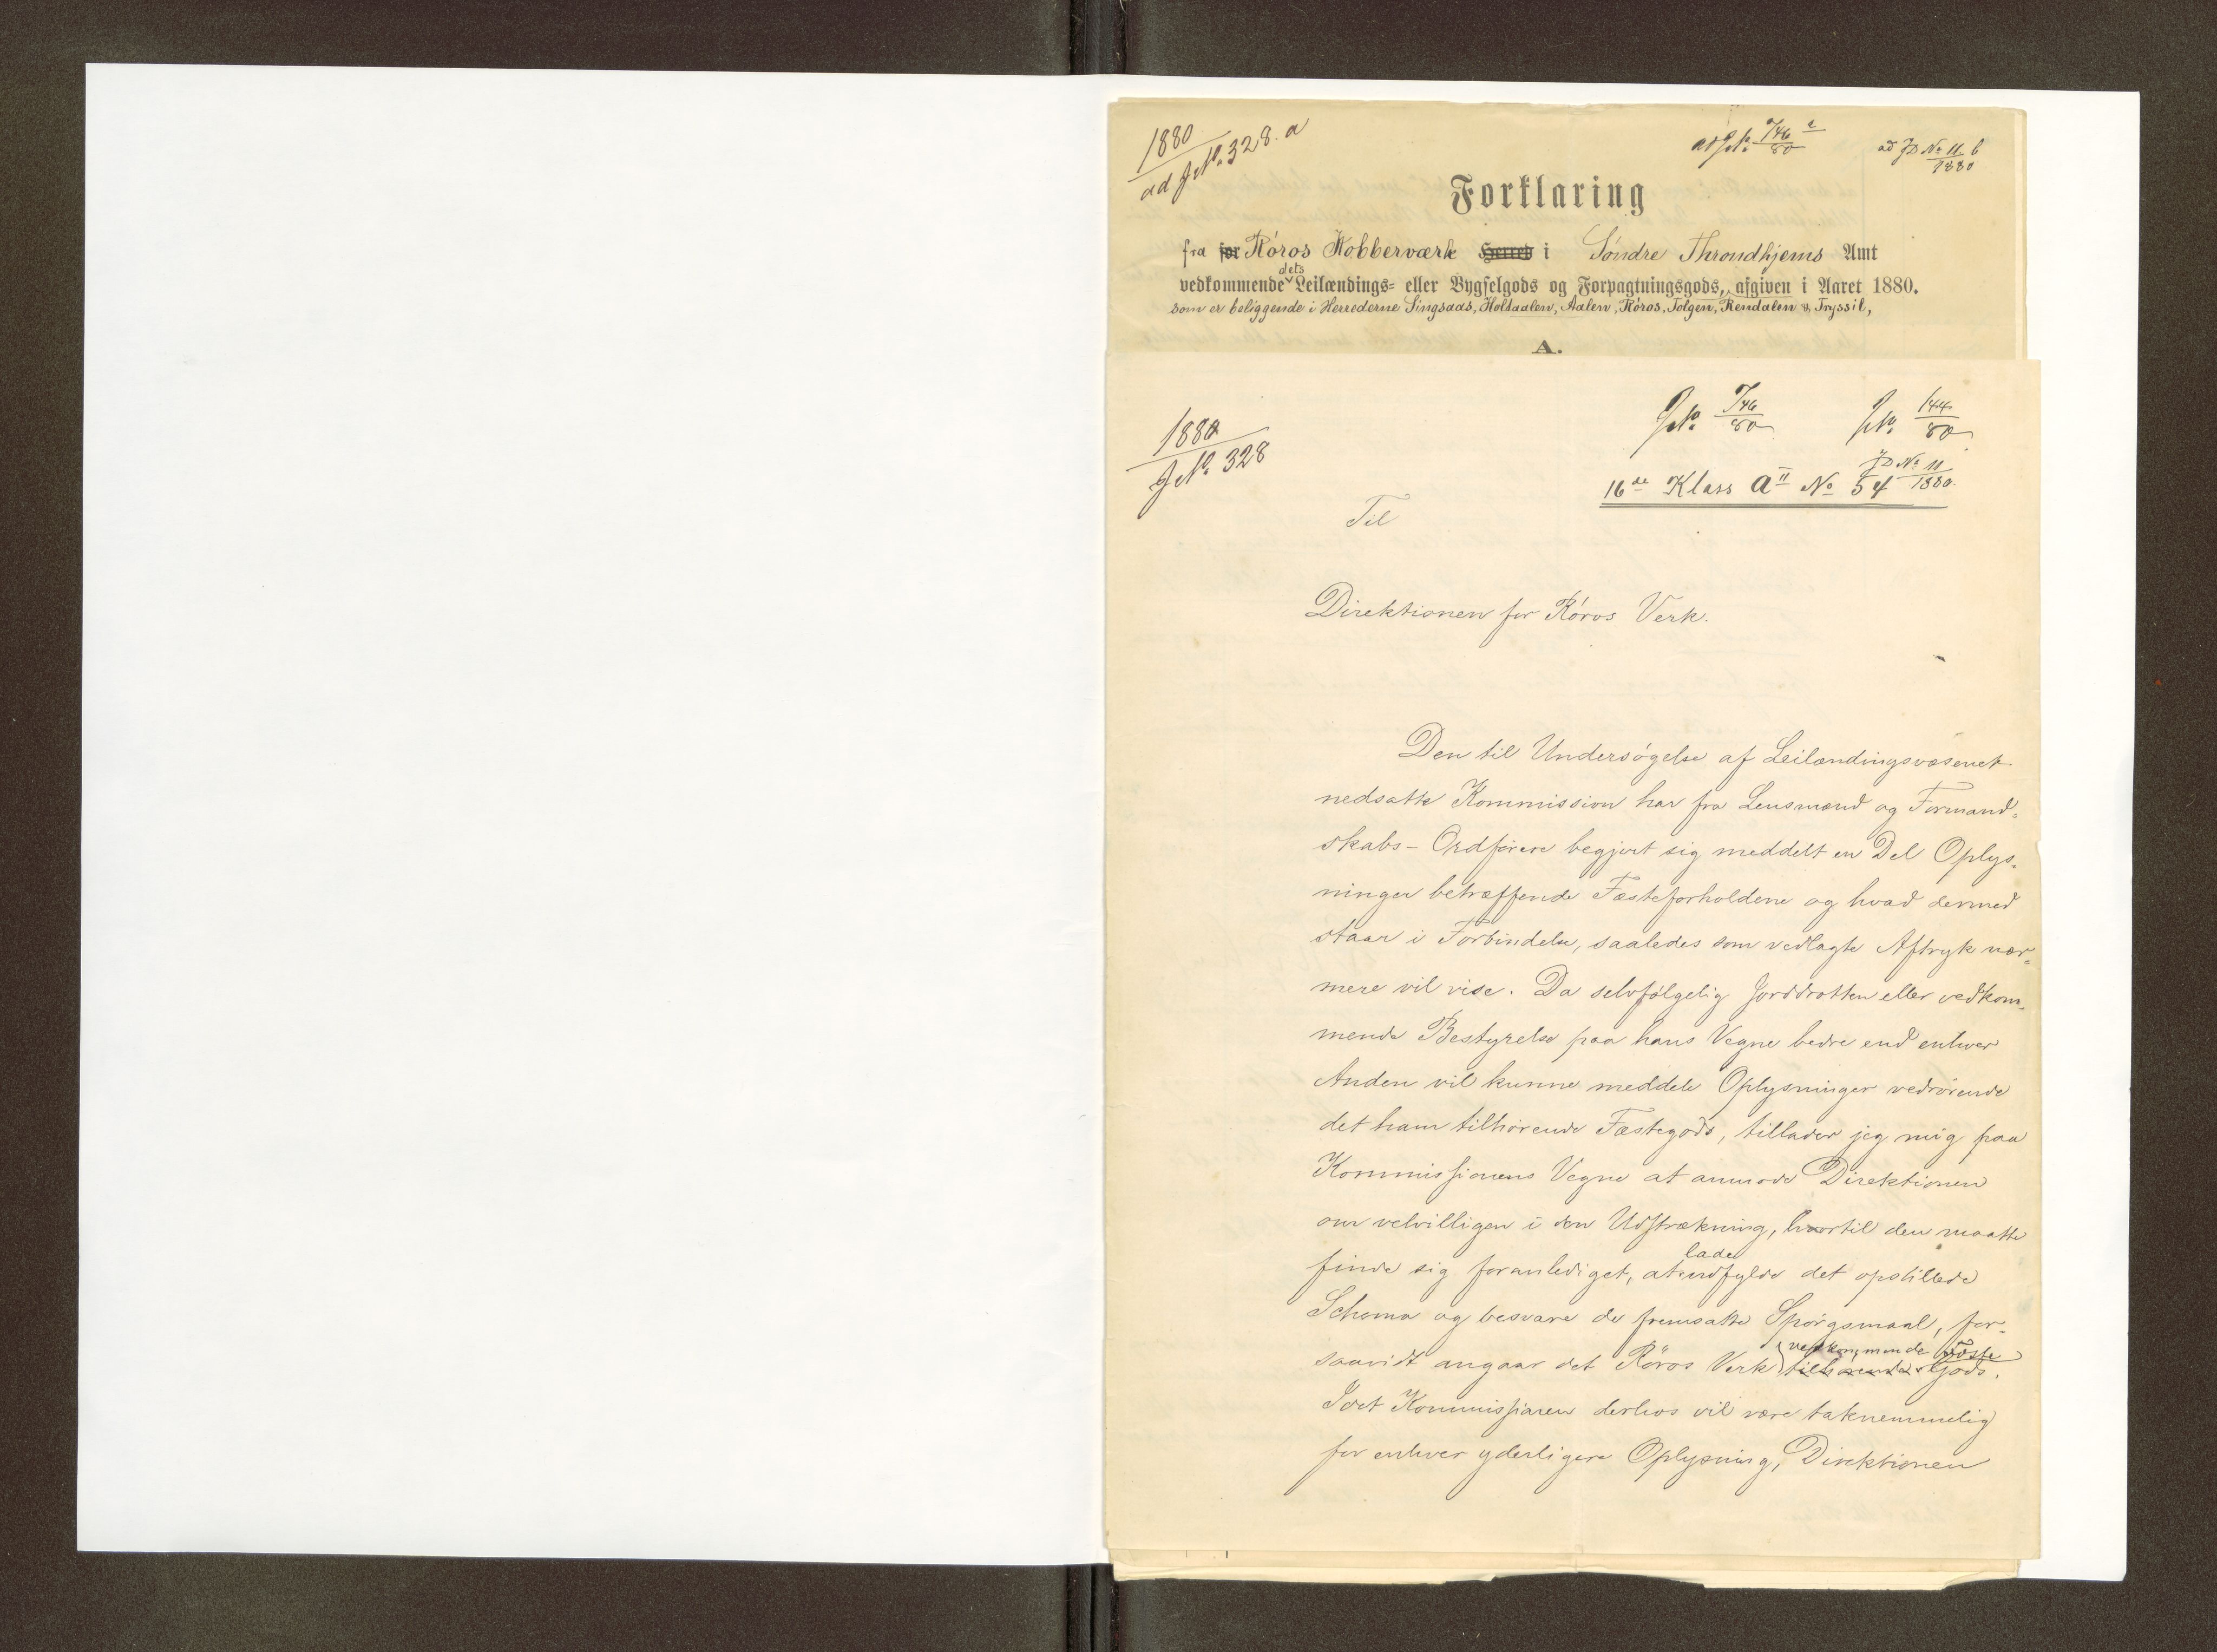 1880
ad J.No. 328. a
ad J.No. 746 a
80
ad JD No 11 b
1880
Forklaring
fra for Röros Kobberværk Herred i Söndre Throndhjems Amt
dets
vedkommende Leilændings- eller Bygselgods og Forpagtningsgods, afgiven i Aaret 1880.
som er beliggende i Herrederne Singsaas, Holtaalen, Aalen, Röros, Tolgen, Rendalen & Tryssil,
A.
1880
J.No. 328
J.No. 746
80
J.No. 144
80
JD No 11
1880.
16de Klass a II No 54
Til
Direktionen for Röros Verk.
Den til Undersögelse af Leilændingsvæsenet
nedsatte Kommission har fra Lensmænd og Formand-
skabs-Ordförere begjært sig meddelt en Del Oplys-
ninger betræffende Fæsteforholdene og hvad dermed
staar i Forbindelse, saaledes som vedlagte Aftryk nær-
mere vil vise. Da selvfölgelig Jorddrotten eller vedkom-
mende Bestyrelse paa hans Vegne bedre end enhver
Anden vil kunne meddele Oplysninger vedrörende
det ham tilhörende Fæstegods, tillader jeg mig paa
Kommissionens Vegne at anmode Direktionen
om velvilligen i den Udstrækning, hvortil den maatte
lade
finde sig foranlediget, at udfylde det opstillede
Schema og besvare de fremsatte Spörgsmaal, for-
vedkommende Fæste
saavidt angaar det Röros Verk tilhörende Gods.
Idet Kommissionen derhos vil være taknemmelig
for enhver yderligere Oplysning, Direktionen